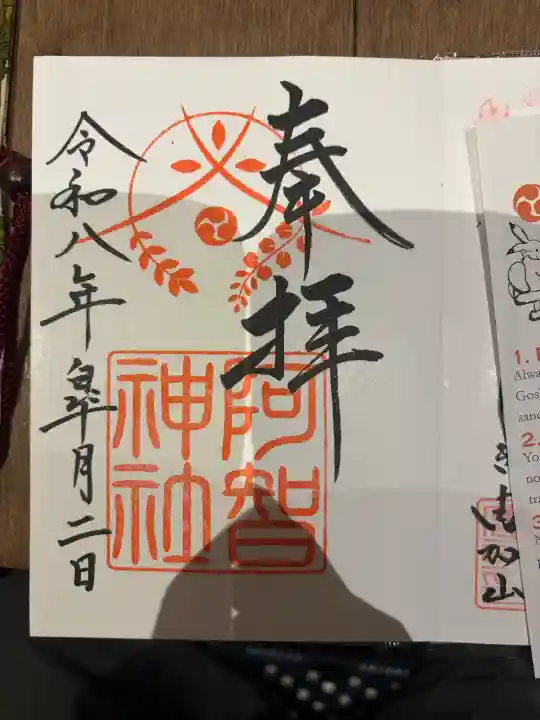 奉拝
阿智
神社
令和八年皐月二日
吉加山
1.
Alwa
Gos
sand
2.
Yo
no
tra
3
N